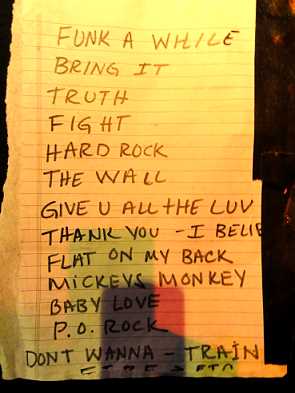 FUNK A WHILE
BRING IT
TRUTH
FIGHT
HARD ROCK
THE WALL
GIVE U ALL THE LUV
THANK YOU - I BELIE
FLAT ON MY BACK
MICKEYS MONKEY
BABY LOVE
P.O. ROCK
DONT WANNA - TRAIN